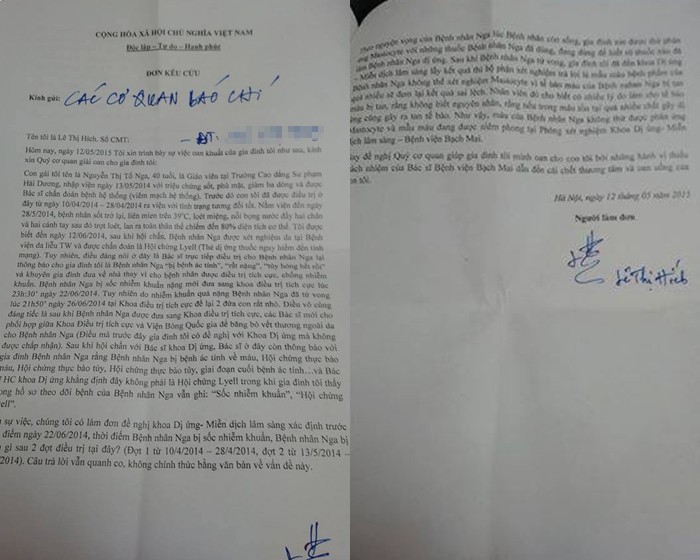 CỘNG HÒA XÃ HỘI CHỦ NGHĨA VIỆT NAM
Độc lập – Tự do – Hạnh phúc
ĐƠN KÊU CỨU
Kính gửi: CÁC CƠ QUAN BÁO CHÍ
Tên tôi là Lê Thị Hích. Số CMT: - ĐT:
Hôm nay, ngày 12/05/2015 Tôi xin trình bày sự việc oan khuất của gia đình tôi như sau, kính
xin Quý cơ quan giải oan cho gia đình tôi:
Con gái tôi tên là Nguyễn Thị Tố Nga, 40 tuổi, là Giáo viên tại Trường Cao đẳng Sư phạm
Hải Dương, nhập viện ngày 13/05/2014 với triệu chứng sốt, phù mặt, giảm ba dòng và được
Bác sĩ chẩn đoán bệnh hệ thống (viêm mạch hệ thống). Trước đó con tôi đã được điều trị ở
đây từ ngày 10/04/2014 – 28/04/2014 ra viện với tình trạng tương đối tốt. Nằm viện đến ngày
28/5/2014, bệnh nhân sốt trở lại, liên miên trên 39°C, loét miệng, nổi bọng nước đầy hai chân
và hai cánh tay sau đó trợt loét, lan ra toàn thân thể chiếm đến 80% diện tích cơ thể. Tôi được
biết đến ngày 12/06/2014, sau khi hội chẩn, Bệnh nhân Nga được xét nghiệm da tại Bệnh
viện da liễu TW và được chẩn đoán là Hội chứng Lyell (Thể dị ứng thuốc nguy hiểm đến tính
mạng). Tuy nhiên, điều đáng nói ở đây là Bác sĩ trực tiếp điều trị cho Bệnh nhân Nga lại
thông báo cho gia đình tôi là Bệnh nhân Nga “bị bệnh ác tính”, “rất nặng”, “tủy hỏng hết rồi”
và khuyên gia đình đưa về nhà thay vì cho bệnh nhân được điều trị tích cực, chống nhiễm
khuẩn. Bệnh nhân Nga bị sốc nhiễm khuẩn nặng mới đưa sang khoa điều trị tích cực lúc
23h30' ngày 22/06/2014. Tuy nhiên do nhiễm khuẩn quá nặng Bệnh nhân Nga đã tử vong
lúc 21h50' ngày 26/06/2014 tại Khoa điều trị tích cực để lại 2 đứa con rất nhỏ. Điều vô cùng
đáng tiếc là sau khi Bệnh nhân Nga được đưa sang Khoa điều trị tích cực, các Bác sĩ mới cho
phối hợp giữa Khoa Điều trị tích cực và Viện Bỏng Quốc gia để băng bó vết thương ngoài da
cho Bệnh nhân Nga (Điều mà trước đây gia đình tôi có đề nghị với Khoa Dị ứng mà không
được chấp nhận). Sau khi hội chẩn với Bác sĩ Khoa Dị ứng, Bác sĩ ở đây còn thông báo với
gia đình Bệnh nhân Nga rằng Bệnh nhân Nga bị bệnh ác tính về máu, Hội chứng thực bào
máu, Hội chứng thực bào tủy, Hội chứng thực bào tủy, giai đoạn cuối bệnh ác tính…và Bác
HC khoa Dị ứng khẳng định đây không phải là Hội chứng Lyell trong khi gia đình tôi thấy
ong hồ sơ theo dõi bệnh của Bệnh nhân Nga vẫn ghi: “Sốc nhiễm khuẩn”, “Hội chứng
yell”.
sự việc, chúng tôi có làm đơn đề nghị khoa Dị ứng- Miễn dịch lâm sàng xác định trước
điểm ngày 22/06/2014, thời điểm Bệnh nhân Nga bị sốc nhiễm khuẩn, Bệnh nhân Nga bị
gì sau 2 đợt điều trị tại đây? (Đợt 1 từ 10/4/2014 – 28/4/2014, đợt 2 từ 13/5/2014 –
2014). Câu trả lời vẫn quanh co, không chính thức bằng văn bản về vấn đề này.
nguyện vọng của Bệnh nhân Nga lúc Bệnh nhân còn sống, gia đình xin được thử phản
ứng Mastocyte với những thuốc Bệnh nhân Nga đã dùng, đang dùng để biết rõ thuốc nào đã
làm Bệnh nhân Nga dị ứng. Sau khi Bệnh nhân Nga tử vong, gia đình tôi đã đến khoa Dị ứng
– Miễn dịch lâm sàng lấy kết quả thì bộ phận xét nghiệm trả lời là mẫu máu bệnh phẩm của
Bệnh nhân Nga không thể xét nghiệm Mastocyte vì tế bào máu của Bệnh nhân Nga bị tan
quá nhiều sẽ đem lại kết quả sai lệch. Nhân viên đó cho biết có nhiều lý do làm cho tế bào
máu bị tan, rằng không biết nguyên nhân, rằng nếu trong máu tồn tại quá nhiều chất gây dị
ứng cũng gây ra tan tế bào. Như vậy, máu của Bệnh nhân Nga không thử được phản ứng
Mastocyte và mẫu máu đang được niêm phong tại Phòng xét nghiệm Khoa Dị ứng- Miễn
dịch lâm sàng – Bệnh viện Bạch Mai.
ay đề nghị Quý cơ quan giúp gia đình tôi minh oan cho con tôi bởi những hành vi thiếu
ách nhiệm của Bác sĩ Bệnh viện Bạch Mai dẫn đến cái chết thương tâm và oan uổng của
on tôi.
Hà Nội, ngày 12 tháng 05 năm 2015
Người làm đơn
Lê Thị Hích